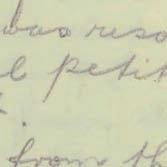 was reso
l petit
from th